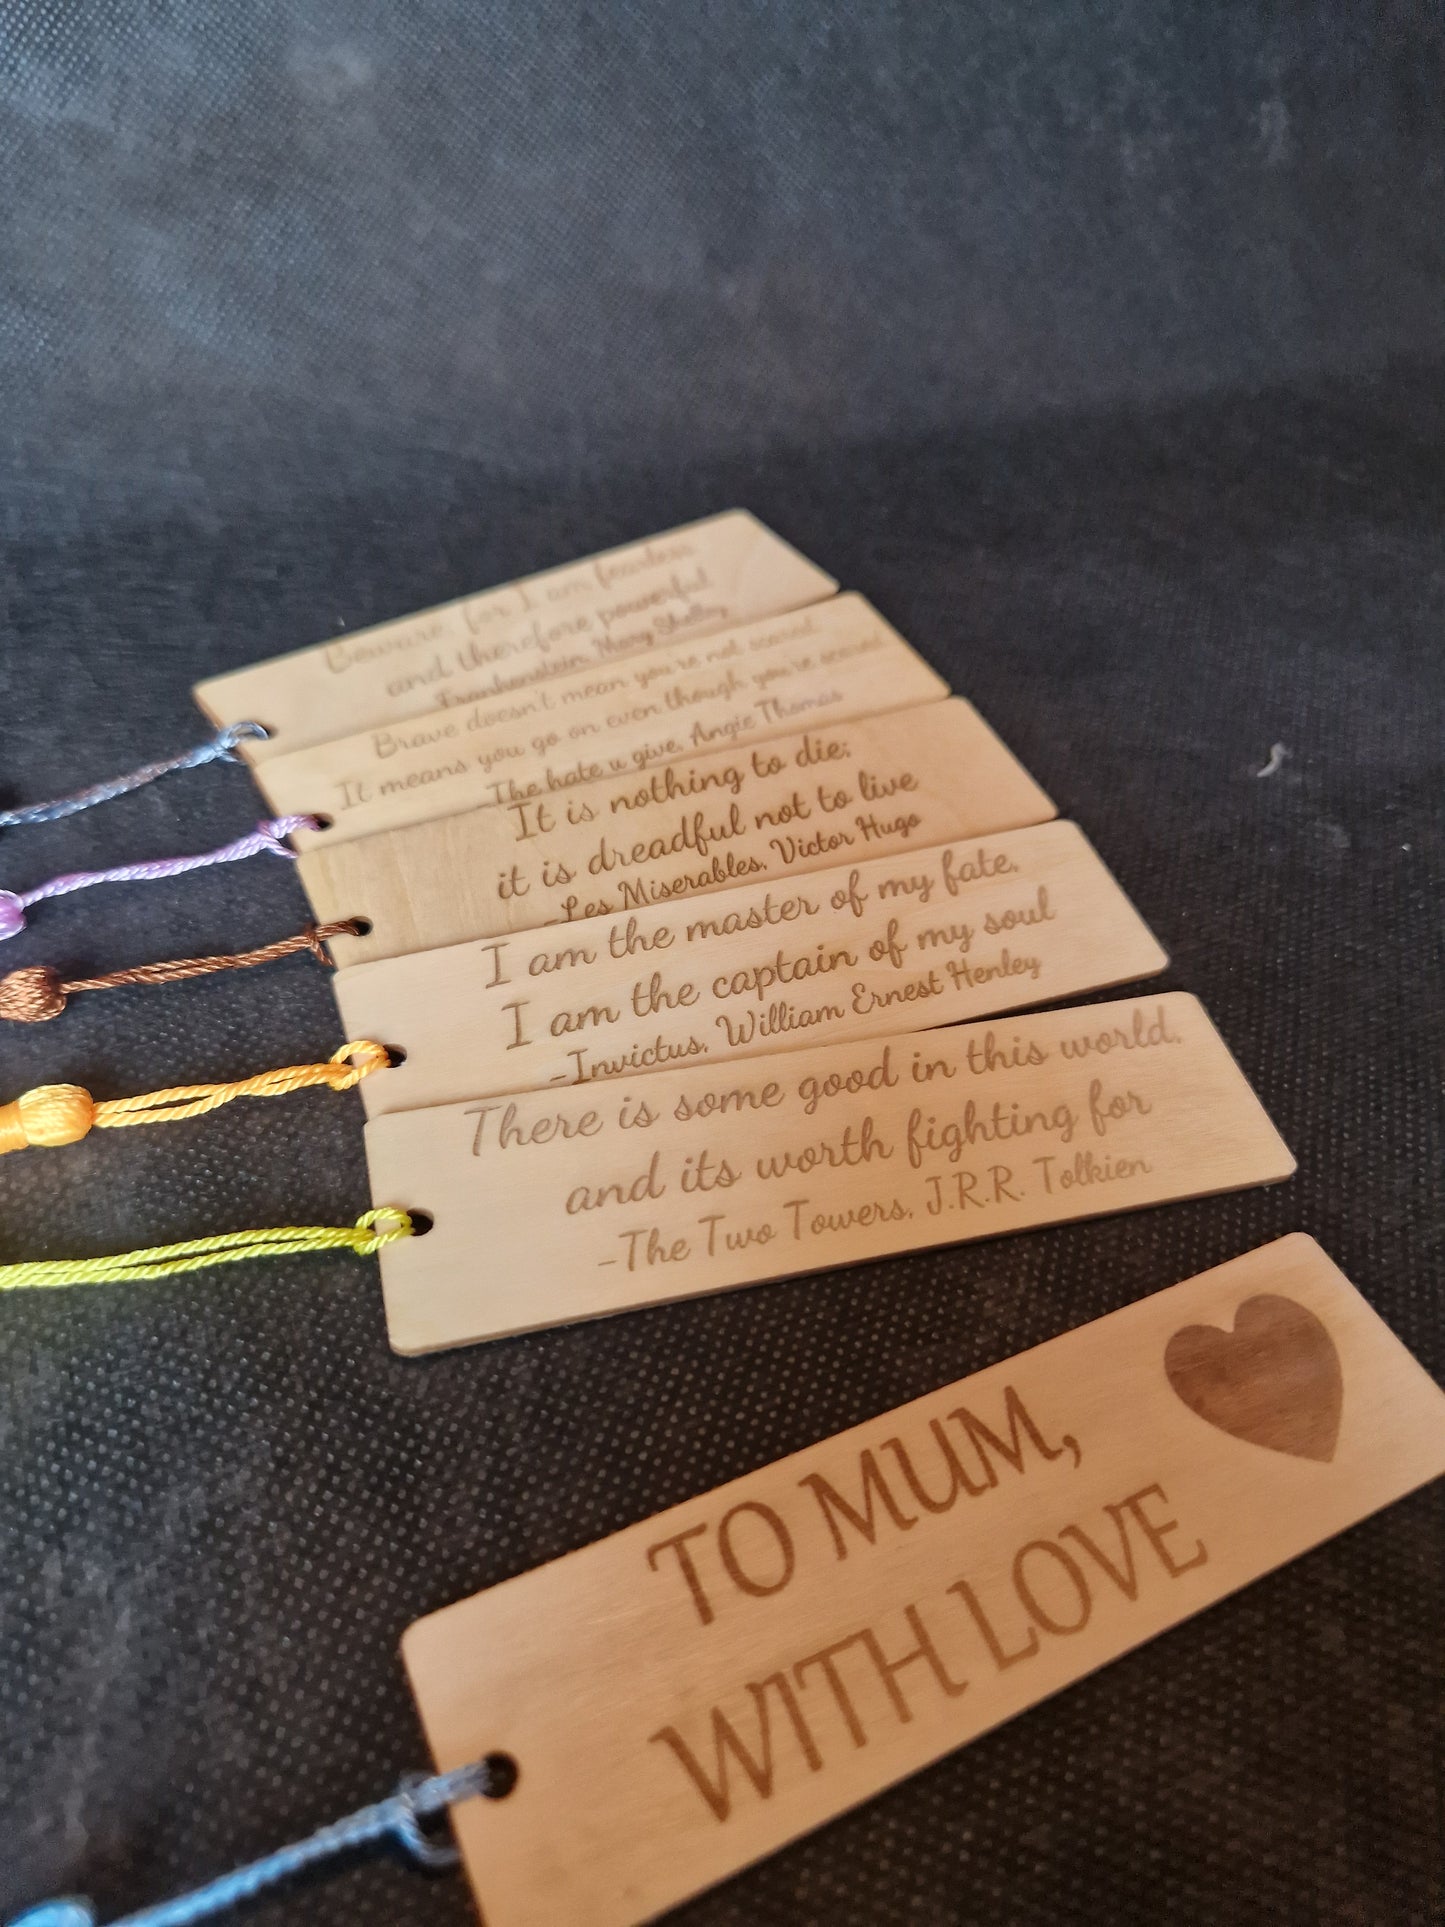 Beware, for I am fearless
and therefore powerful
Frankenstein, Mary Shelley
Brave doesn't mean you're not scared.
It means you go on even though you're scared
-The hate u give, Angie Thomas
It is nothing to die;
it is dreadful not to live
-Les Miserables, Victor Hugo
I am the master of my fate,
I am the captain of my soul
-Invictus, William Ernest Henley
There is some good in this world,
and its worth fighting for
-The Two Towers, J.R.R. Tolkien
TO MUM,
WITH LOVE